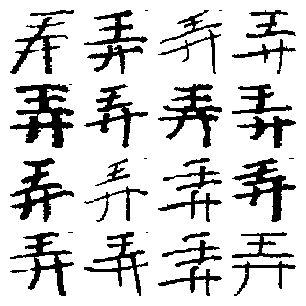 弄弄弄弄
弄弄弄弄
弄弄弄弄
弄弄弄弄